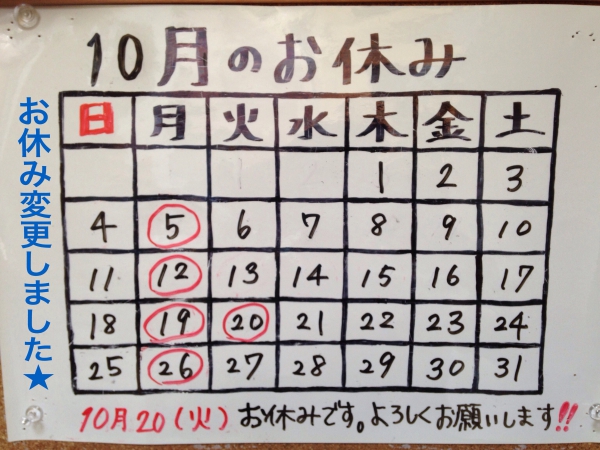 10月のお休み
お休み変更しました★
日 月 火 水 木 金 土
1 2 3
4 5 6 7 8 9 10
11 12 13 14 15 16 17
18 19 20 21 22 23 24
25 26 27 28 29 30 31
10月20(火)お休みです。よろしくお願いします!!